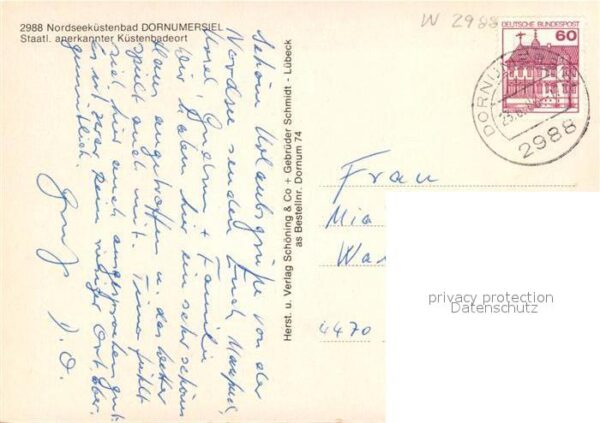 2988 Nordseeküstenbad DORNUMERSIEL
Staatl. anerkannter Küstenbadeort
W 2988
DEUTSCHE BUNDESPOST
60
2988
Schöne Urlaubsgrüße von der
Nordsee senden Euch Manfred,
+ Familie
Wir haben hier ein sehr schönes
Haus angetroffen u. das Wetter
spielt auch mit. Timo fühlt
sich hier auch angesprochen gut.
Es ist zwar kein richtiger Ort aber
gemütlich.
Gruß
Herst. u. Verlag Schöning & Co + Gebrüder Schmidt - Lübeck
as Bestellnr. Dornum 74
Frau
Mia
4470
privacy protection
Datenschutz